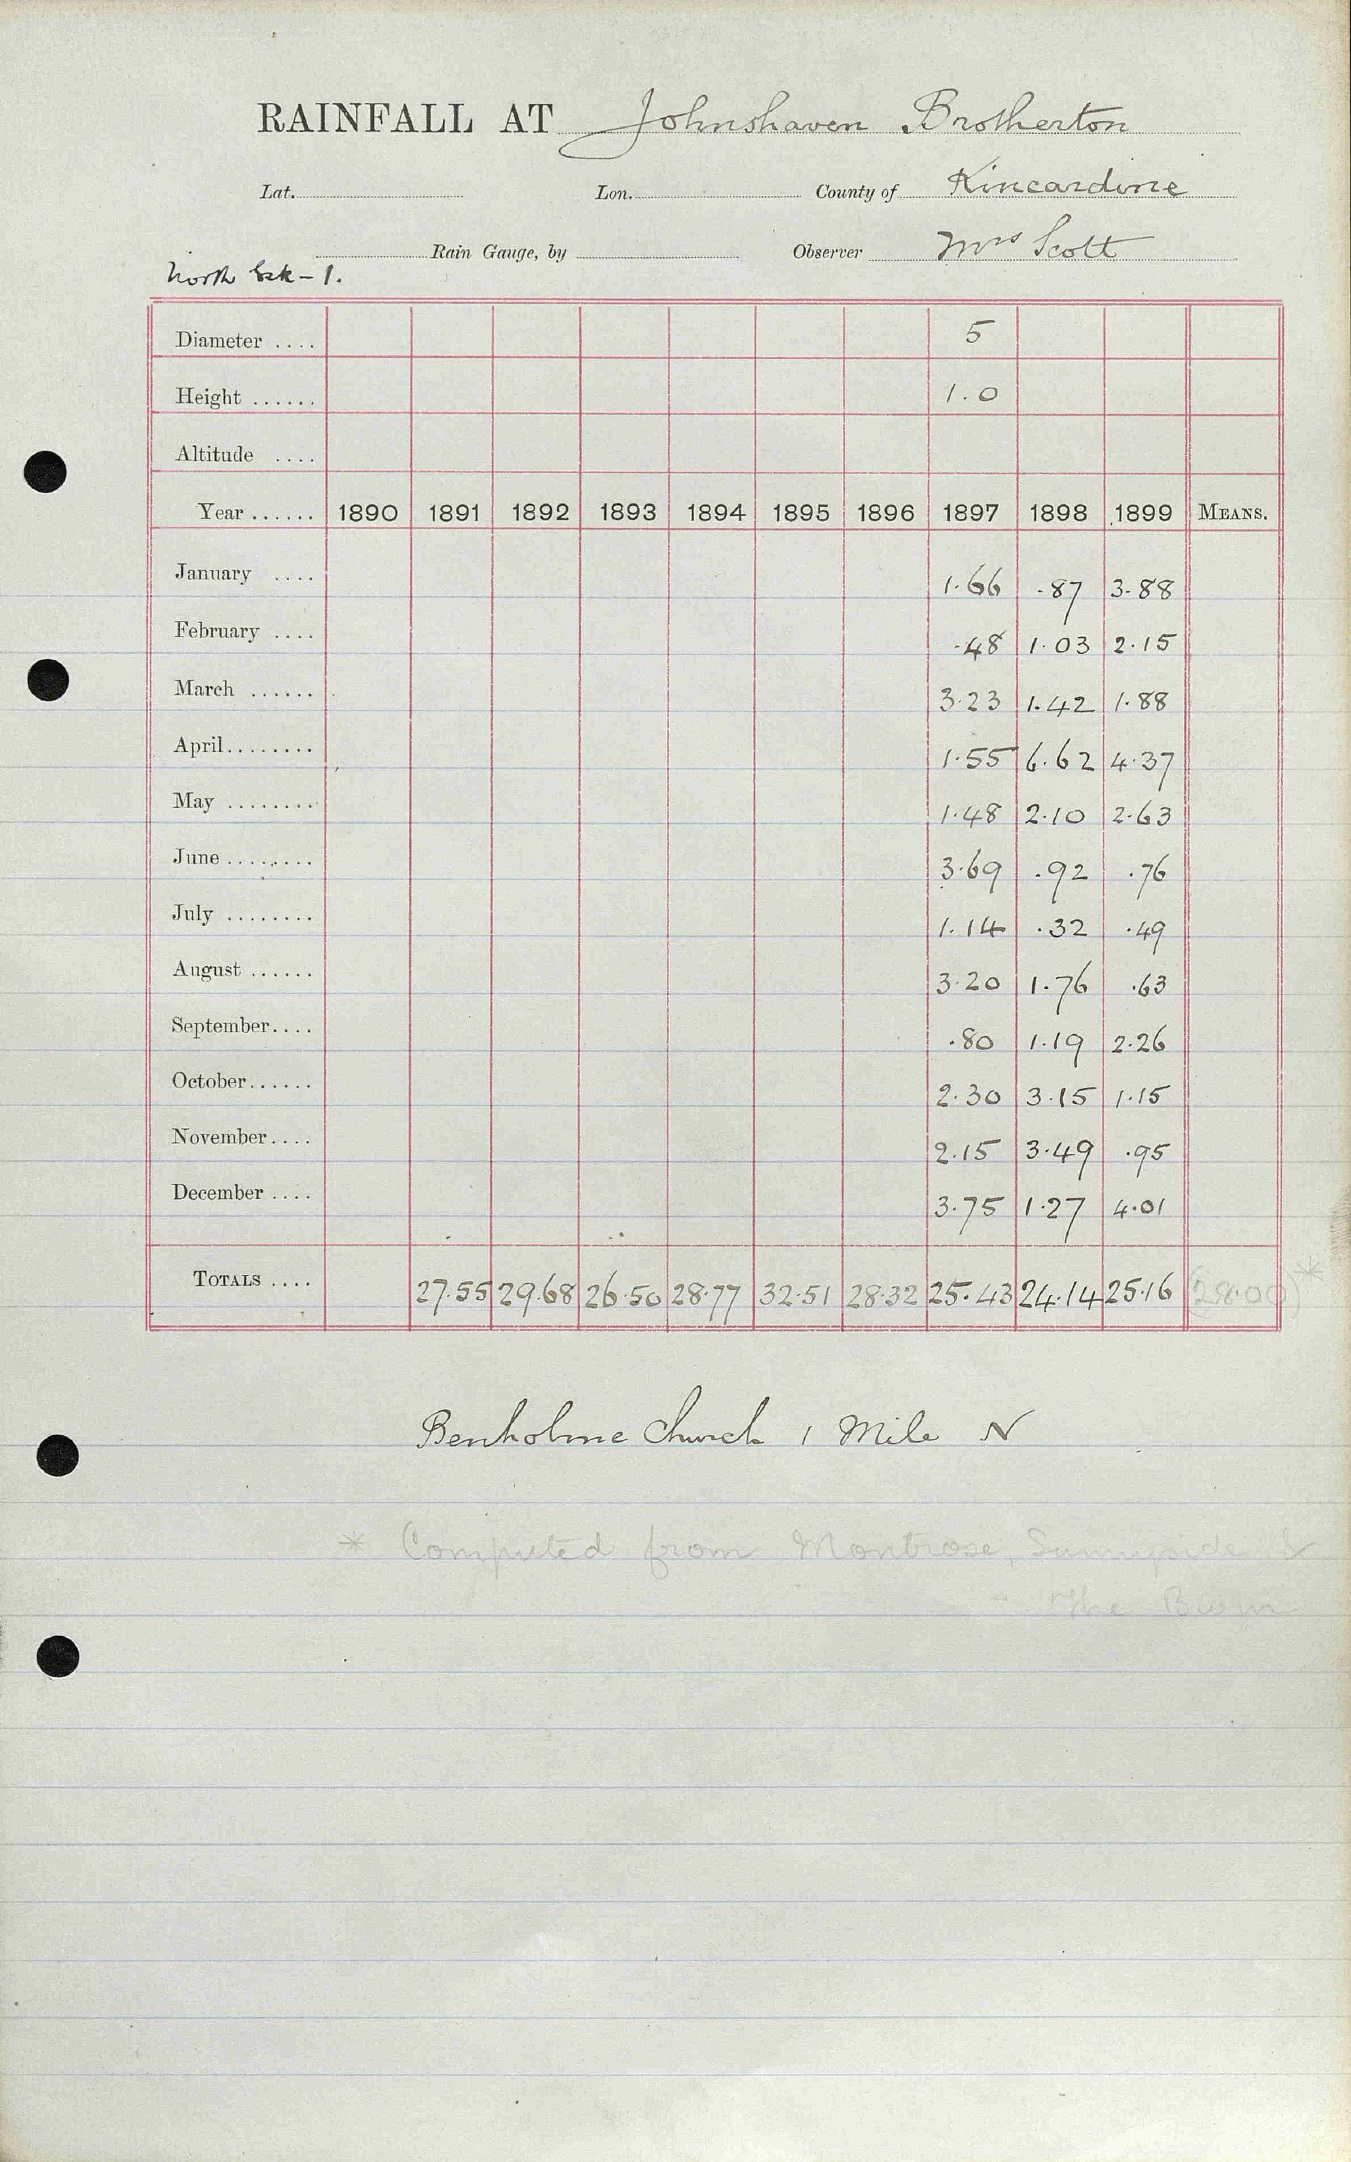 RAINFALL AT Johnshaven Brotherton
Lat. Lon. County of Kincardine
Rain Gauge, by Observer Mrs Scott
North Esk - 1.
Diameter .... 5
Height ...... 1.0
Altitude ....
Year ...... 1890 1891 1892 1893 1894 1895 1896 1897 1898 1899 MEANS.
January .... 1.66 .87 3.88
February .... .48 1.03 2.15
March ...... 3.23 1.42 1.88
April........ 1.55 6.62 4.37
May ........ 1.48 2.10 2.63
June ........ 3.69 .92 .76
July ........ 1.14 .32 .49
August ...... 3.20 1.76 .63
September.... .80 1.19 2.26
October...... 2.30 3.15 1.15
November.... 2.15 3.49 .95
December .... 3.75 1.27 4.01
TOTALS .... 27.55 29.68 26.50 28.77 32.51 28.32 25.43 24.14 25.16 (28.00)*
Benholme Church 1 Mile N
* Computed from Montrose, Sunnyside &
The Burn